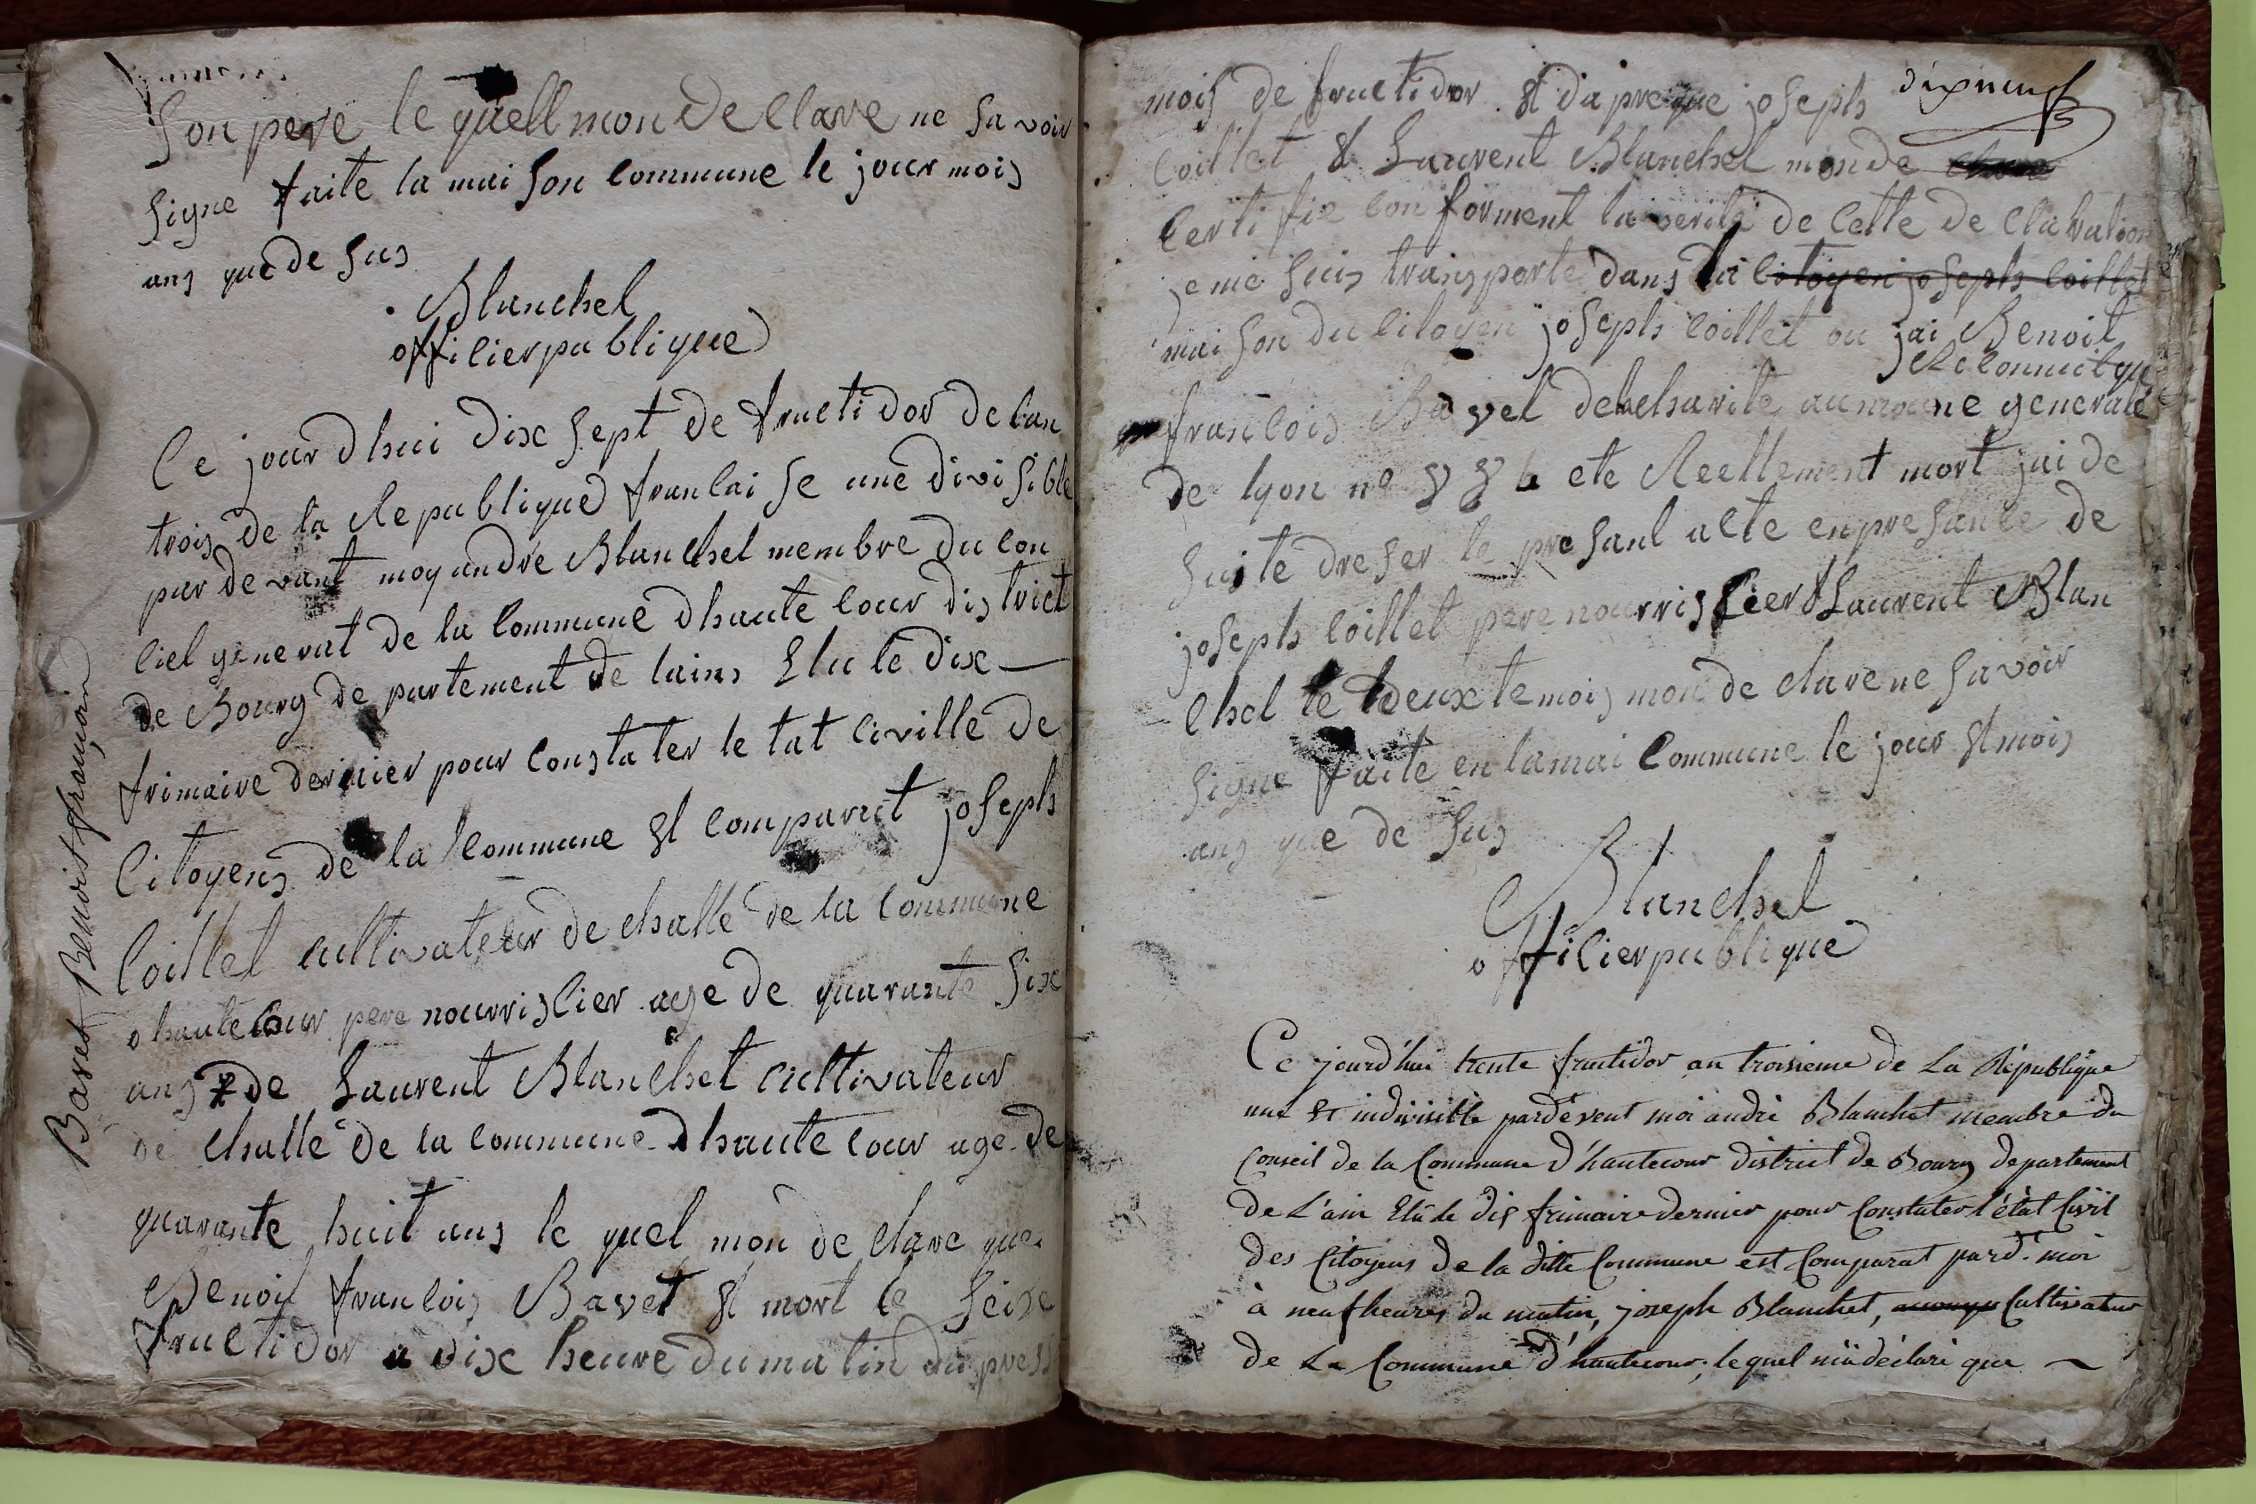 son pere le quell mon de clare ne savoir
signe faite la maison commune le jour mois
ans que de sus
Blanchet
officier publique
Bavet Benoit françois
Ce jour dhui dix sept de fructidor de lan
trois de la Republique francaise une divisible
par devant moy andré Blanchet membre du con
ciel general de la commune dhaute cour district
de Bourg de partement de lains Elu le dix
frimaire dernier pour constater le tat civille de
citoyens de la commune et comparut joseph
Coillet cultivateur de challe de la commune
dhaute cour pere nourriscier age de quarante six
ans & de Laurent Blanchet cultivateur
de challe de la commune dhaute cour age de
quarante huit ans le quel mon de clare que
Benoit francois Bavet et mort le seize
fructidor a dix heure du matin du press
dixneuf
mois de fructidor et dapre que joseph
Coillet & Laurent Blanchet monde clare
certi fie con forment la verite de cette de claration
je me suis transporte dans la citoyen joseph coillet
maison du citoyen joseph coillet ou jai Benoit
Reconnut que
francois Bavet de la charite aumone generale
de lyon no ete Reellement mort jai de
suite dreser le presant acte en presance de
joseph coillet pere nourriscier & Laurent Blan
chet le deux temois mon de clare ne savoir
signe faite en la mai commune le jour et mois
ans que de sus
Blanchet
officier publique
Ce jourd'hui trente fructidor an troisieme de La République
une et indivisible pardevent moi andré Blanchet membre du
Conseil de la Commune d'hautecour district de Bourg departement
de L'ain Elû le dix frimaire dernier pour Constater l'état Civil
des Citoyens de la ditte Commune est Comparut pard.t moi
à neuf heures du matin, joseph Blanchet, Cultivateur
de La Commune d'hautecour, lequel m'a déclaré que